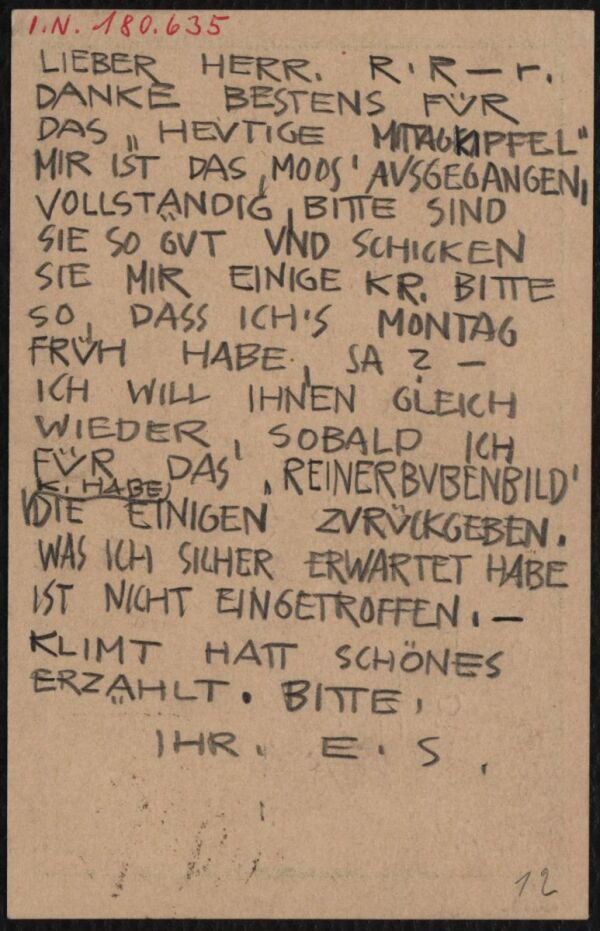 I.N. 180.635
LIEBER HERR. R. R – r.
DANKE BESTENS FÜR
DAS „HEVTIGE MITAGKIPFEL"
MIR IST DAS ‚MOOS' AVSGEGANGEN,
VOLLSTÄNDIG, BITTE SIND
SIE SO GVT VND SCHICKEN
SIE MIR EINIGE KR. BITTE
SO, DASS ICH'S MONTAG
FRÜH HABE, JA ? –
ICH WILL IHNEN GLEICH
WIEDER, SOBALD ICH
FÜR DAS ‚REINERBVBENBILD'
K. HABE)
DIE EINIGEN ZVRÜCKGEBEN.
WAS ICH SICHER ERWARTET HABE
IST NICHT EINGETROFFEN. –
KLIMT HATT SCHÖNES
ERZÄHLT. BITTE,
IHR. E. S.
12